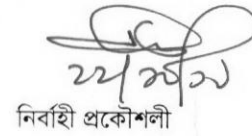 নির্বাহী প্রকৌশলী